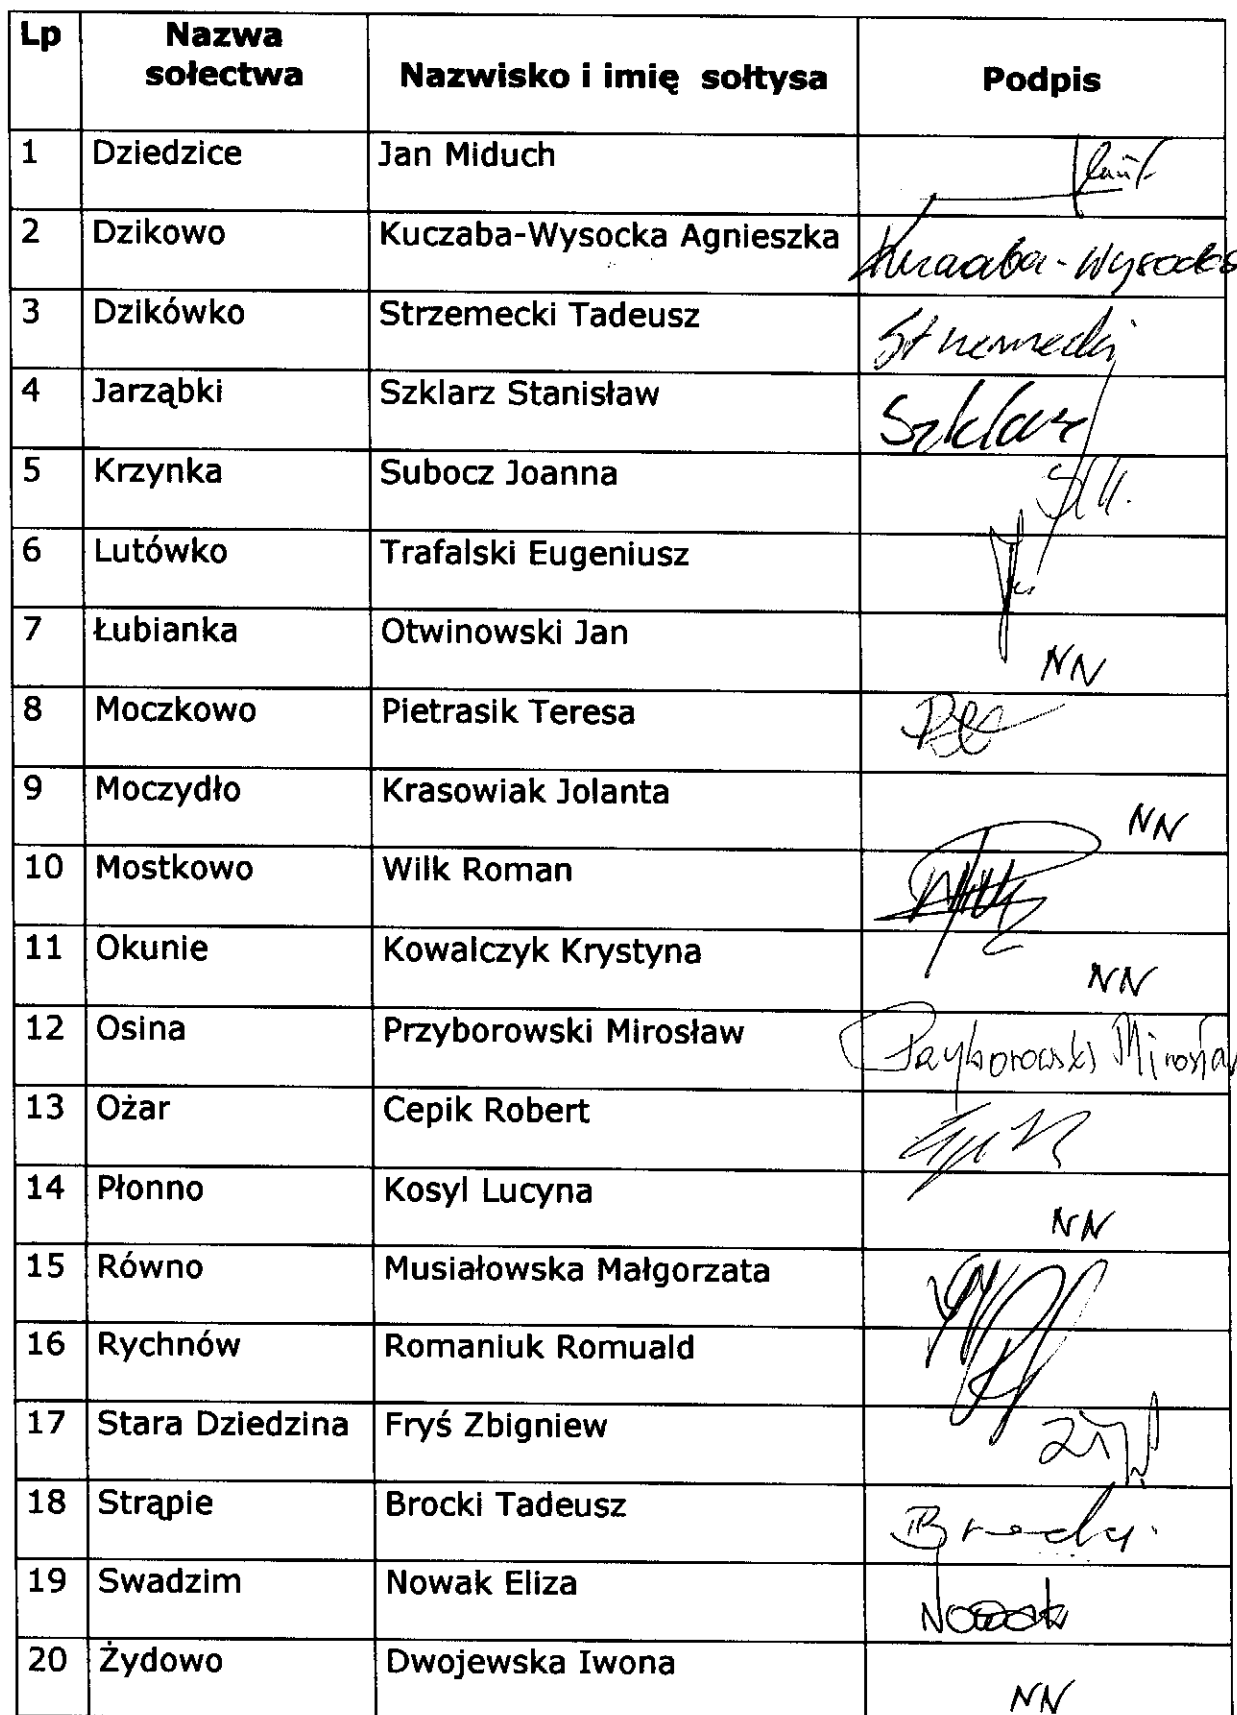 Lp Nazwa sołectwa Nazwisko i imię sołtysa Podpis
1 Dziedzice Jan Miduch
2 Dzikowo Kuczaba-Wysocka Agnieszka Kuczaba-Wysocka
3 Dzikówko Strzemecki Tadeusz Strzemecki
4 Jarząbki Szklarz Stanisław Szklarz
5 Krzynka Subocz Joanna
6 Lutówko Trafalski Eugeniusz
7 Łubianka Otwinowski Jan NN
8 Moczkowo Pietrasik Teresa
9 Moczydło Krasowiak Jolanta NN
10 Mostkowo Wilk Roman
11 Okunie Kowalczyk Krystyna NN
12 Osina Przyborowski Mirosław Przyborowski Mirosław
13 Ożar Cepik Robert
14 Płonno Kosyl Lucyna NN
15 Równo Musiałowska Małgorzata
16 Rychnów Romaniuk Romuald
17 Stara Dziedzina Fryś Zbigniew
18 Strąpie Brocki Tadeusz Brocki
19 Swadzim Nowak Eliza Nowak
20 Żydowo Dwojewska Iwona NN